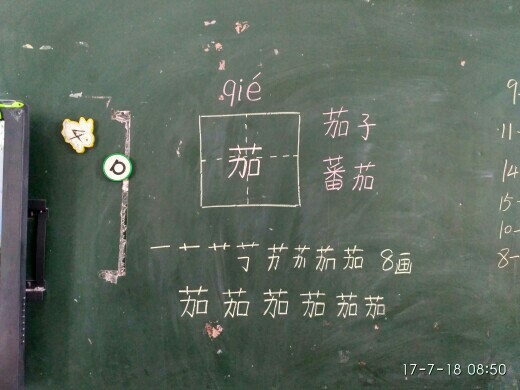 qié
茄
茄子
蕃茄
8画
茄 茄 茄 茄 茄 茄
9-
11-
14
15-
10-
8-
17-7-18 08:50